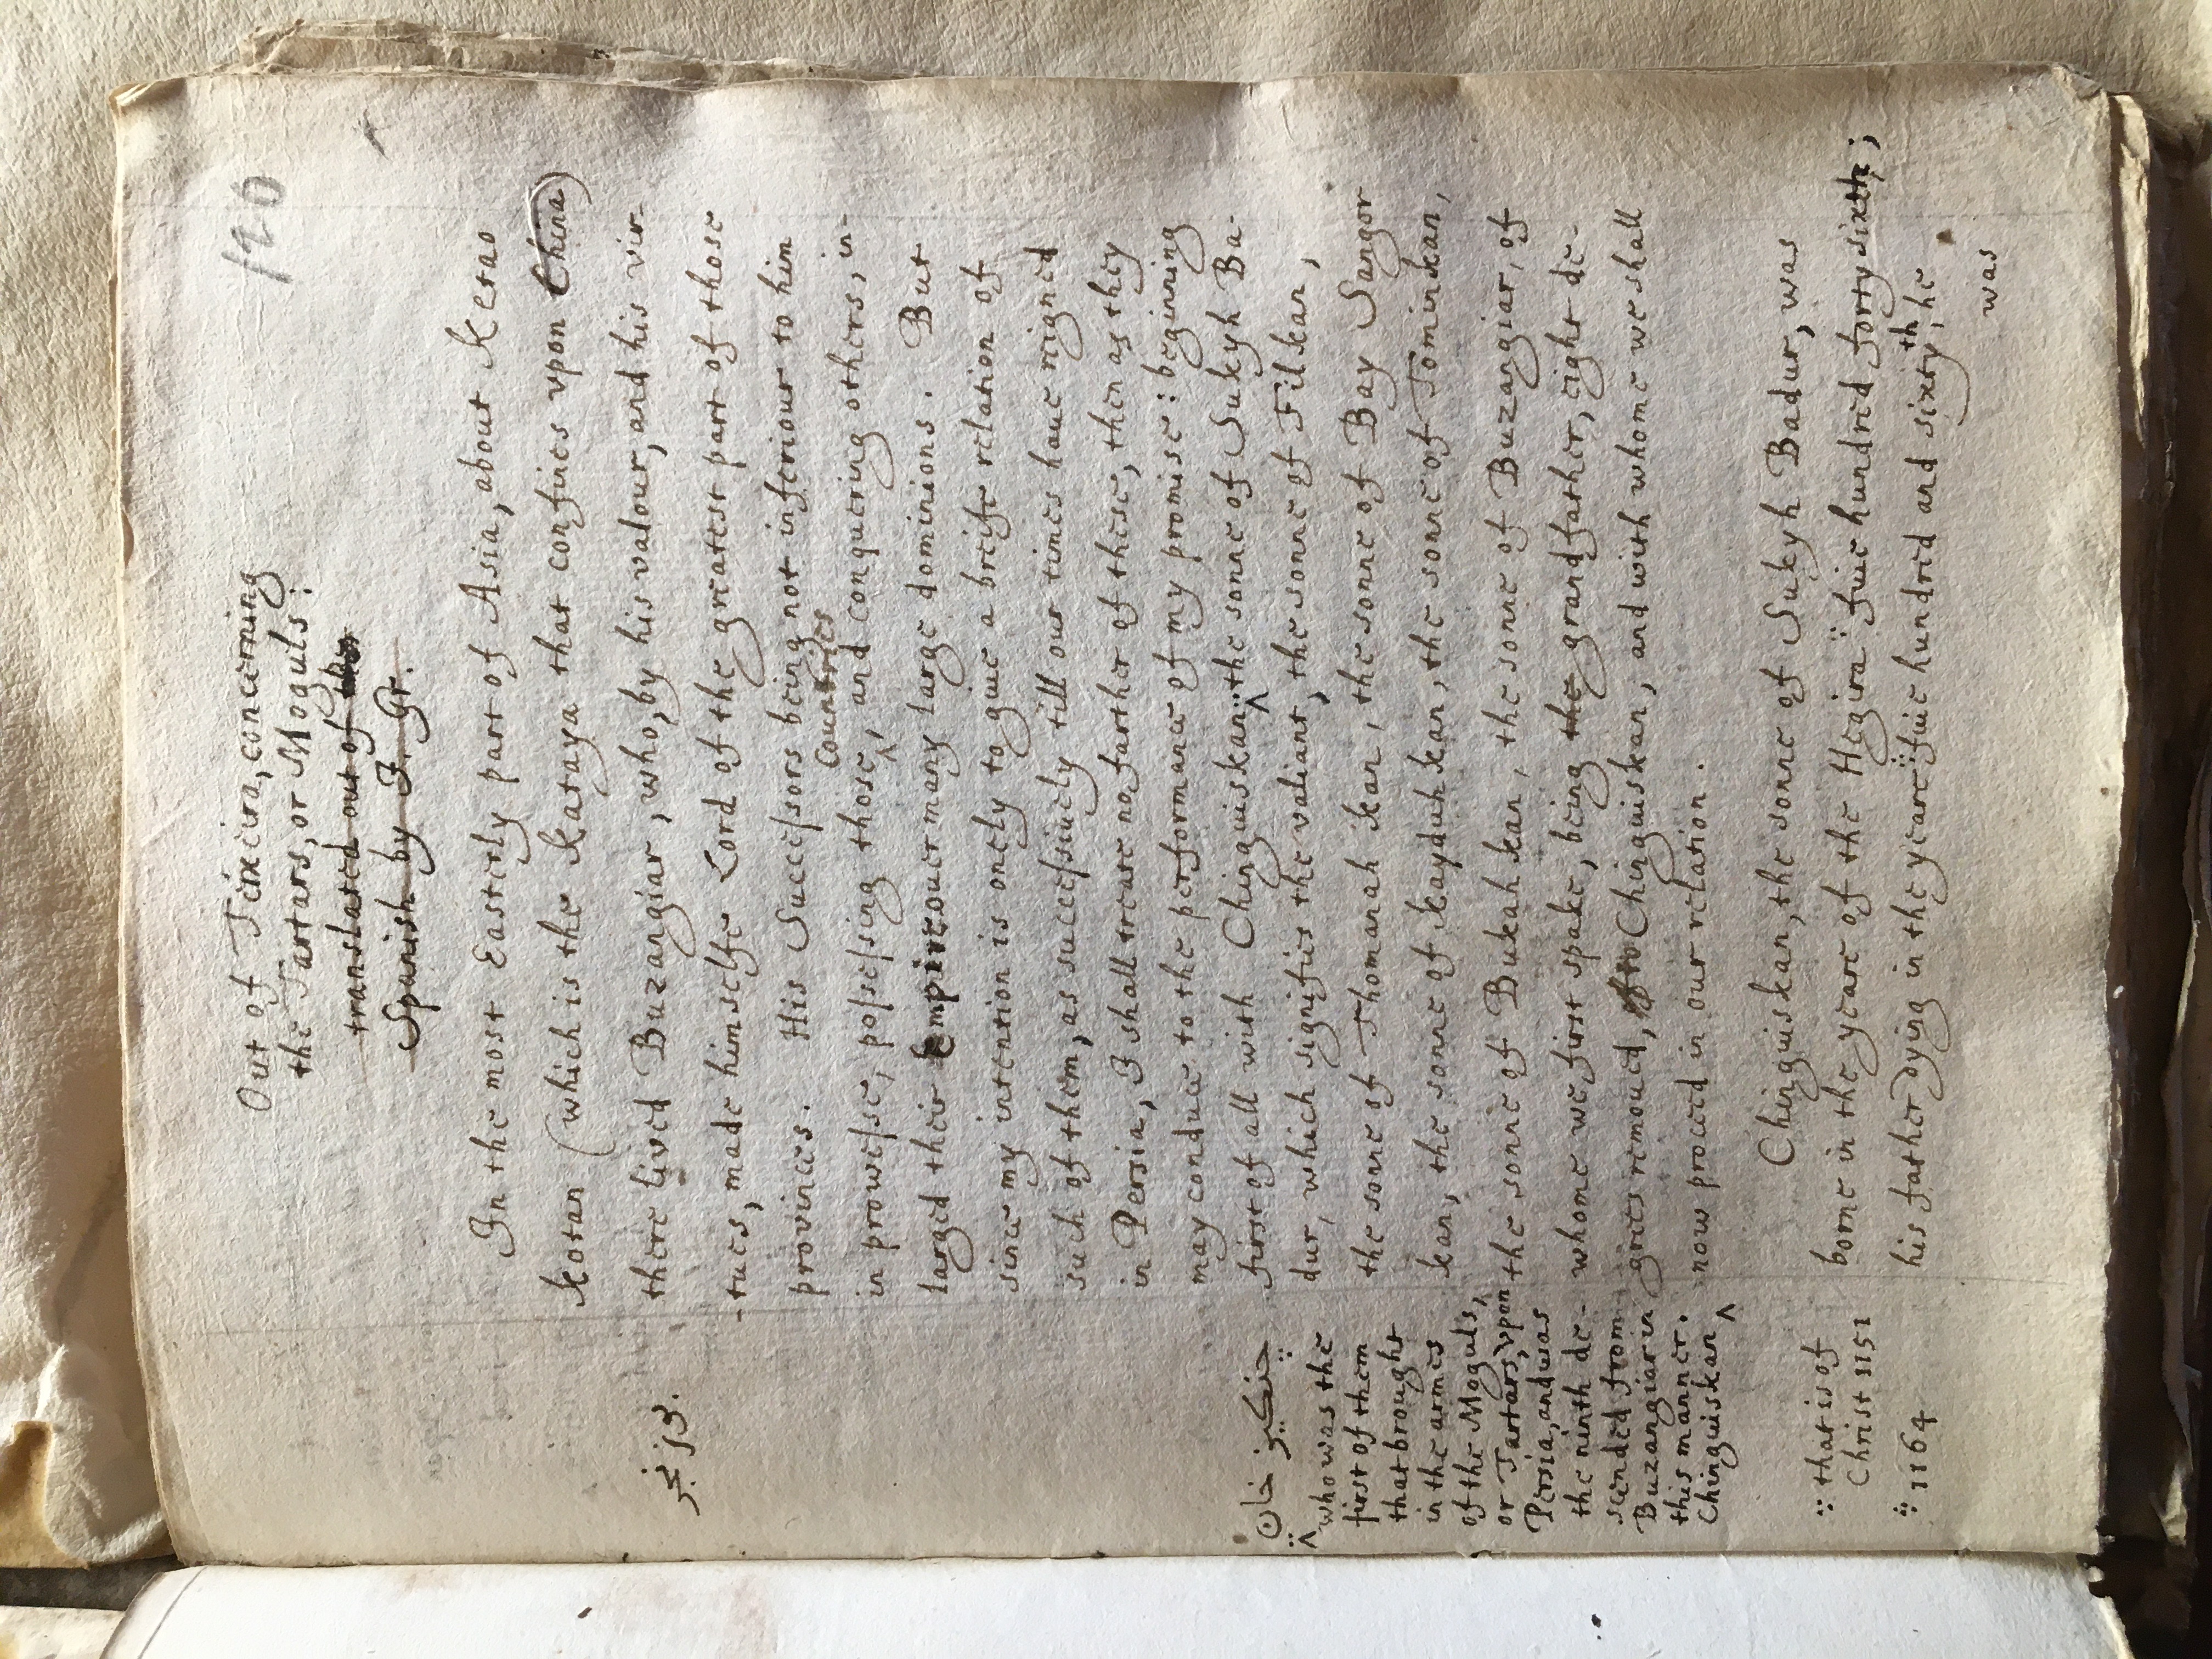 120
Out of Teixeira, concerning
the Tartars, or Moguls:
translated out of
Spanish by J. Gr.
In the most Easterly part of Asia, about Ketao
kotan (which is the Kataya that confines vpon China)
there lived Buzangiar, who, by his valour, and his vir-
-tues, made himselfe Lord of the greatest part of those
provinces. His Successors being not inferiour to him
in prowesse, possessing those, and conquering others, in-
Countries
larged their Empire ouer many large dominions. But
since my intention is onely to giue a breife relation of
such of them, as successiuely till our times haue reigned
in Persia, I shall treate no farther of these, then as they
may conduce to the performance of my promise: beginning
first of all with Chinguiskan ∵ the sonne of Sukyh Ba-
dur, which signifies the valiant, the sonne of Filkan,
the sonne of Thomanah kan, the sonne of Bay Sangor
kan, the sonne of kayduhkan, the sonne of Tominkan,
the sonne of Bukahkan, the sonne of Buzangiar, of
whome we first spake, being the grandfather, eight de-
grees remoued, to Chinguiskan, and with whome we shall
now proceed in our relation.
Chinguiskan, the sonne of Sukyh Badur, was
borne in the yeare of the Hegira ∵ fiue hundred forty sixth;
his father dying in the yeare ∵ fiue hundred and sixty th, he
was
بوزنجر
چنكيز خان
who was the
first of them
that brought
in the armies
of the Moguls,
or Tartars, vpon
Persia, and was
the ninth de-
scended from
Buzangiar in
this manner.
Chinguiskan
∵ that is of
Christ 1151
∵ 1164